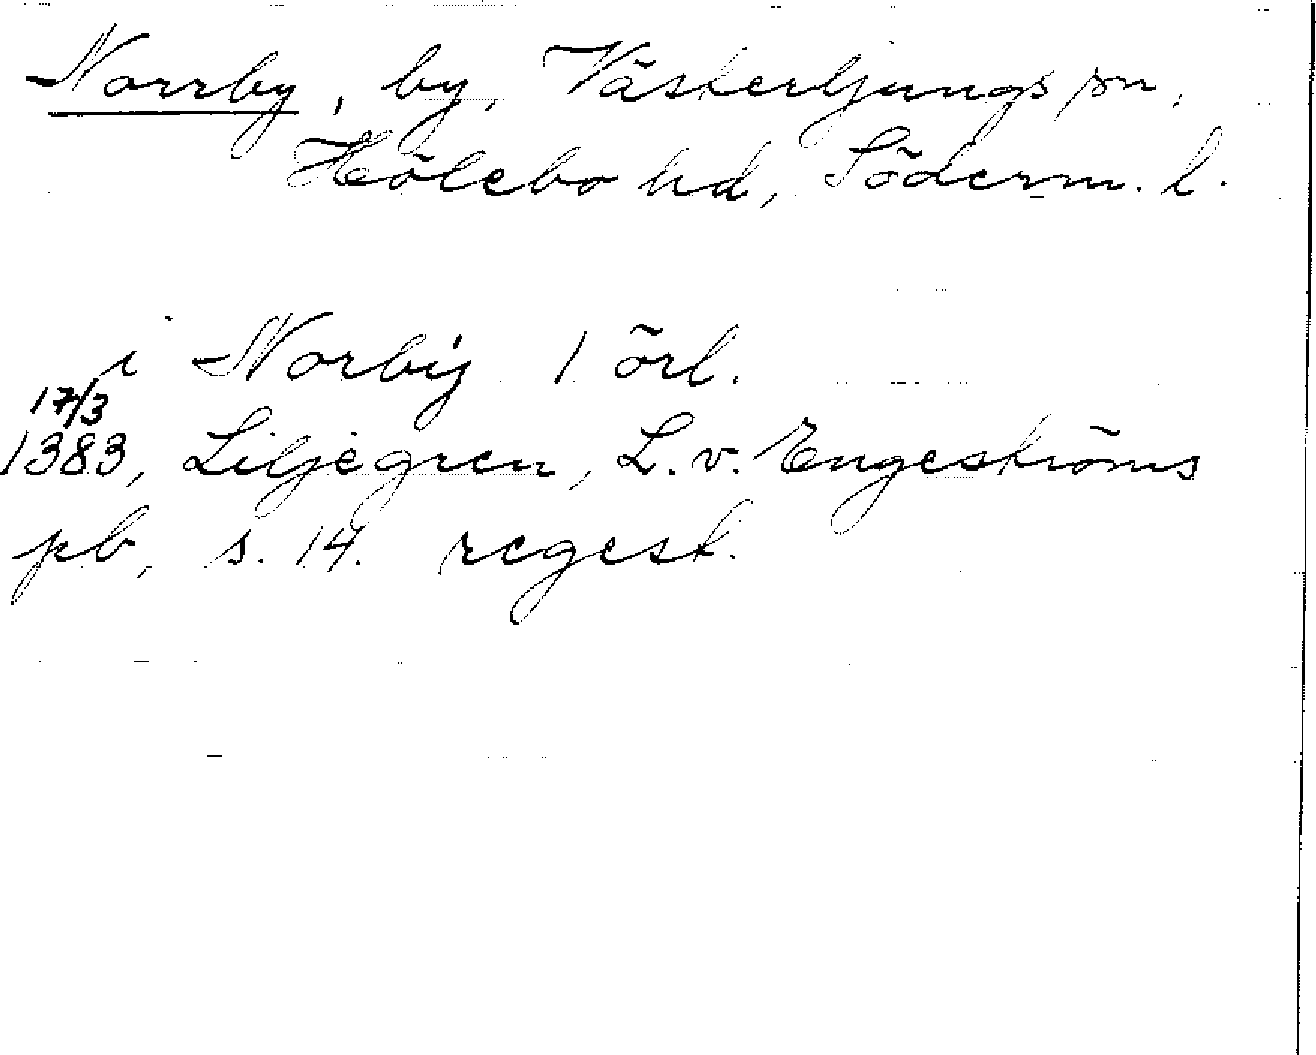 Norrby, by, Västerljungs sn,
Hölebo hd, Söderm. l.
i Norbÿ 1 örl.
17/3
1383, Liljegren, L. v. Engeströms
pb, s. 14. regest.